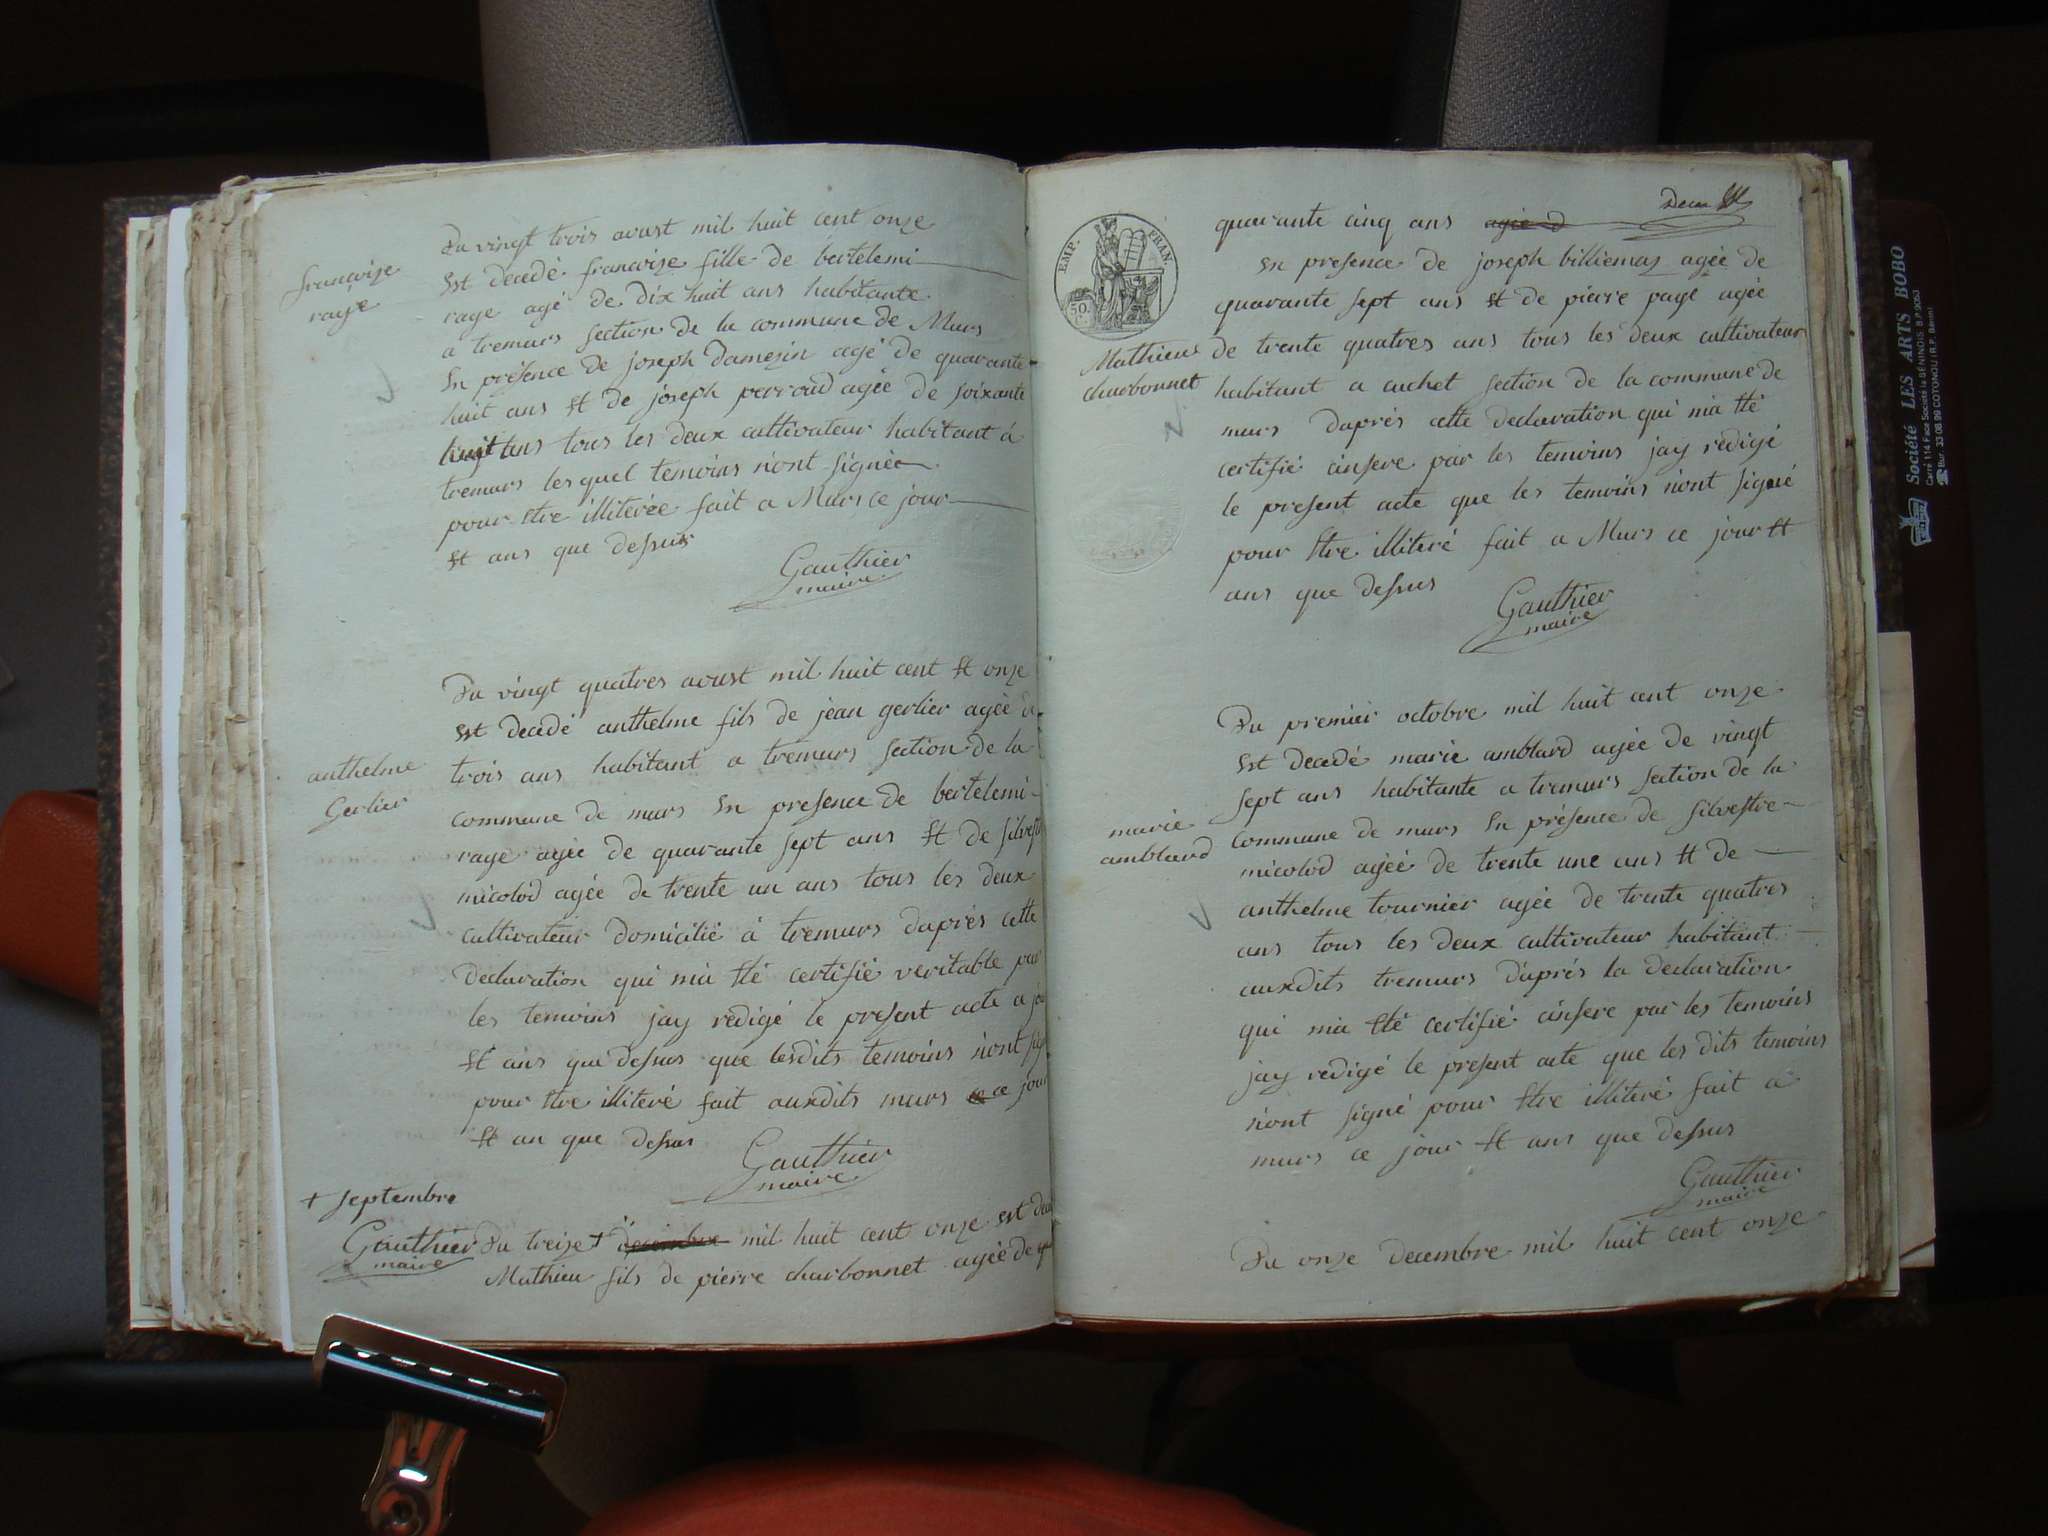 francoize
raye
Du vingt trois avust mil huit cent onze
Est decedé francoize fille de bertelemi
raye agé de dix huit ans habitante
a tremurs section de la commune de Murs
En présence de joseph damezin agé de quarante
huit ans Et de joseph perroud agée de soixante
huit ans tous les deux cultivateur habitant á
tremurs lesquel temoins n'ont signée
pour Etre illiterée fait a Murs ce jour
Et ans que dessus
Gauthier
maire
anthelme
Gerlier
Du vingt quatres avust mil huit cent Et onze
Est decedé anthelme fils de jean gerlier agée de
trois ans habitant a tremurs section de la
commune de murs En presence de bertelemi
raye agée de quarante sept ans Et de silvestre
micolod agée de trente un ans tous les deux
cultivateur domicilié à tremurs daprés cette
declaration qui m'a Eté certifié veritable par
les temoins jay redigé le present acte a jour
Et ans que dessus que lesdits temoins n'ont sig
pour Etre illiteré fait auxdits murs ce jour
Et an que dessus
Gauthier
maire
+ septembre
Gauthier
maire
Du treize + decembre mil huit cent onze est dec
Mathieu fils de pierre charbonnet agée de
EMP. FRAN.
50.
quarante cinq ans agée d
En presence de joseph billiemaz agée de
quarante sept ans Et de pierre payé agée
Mathieu
charbonnet
de trente quatres ans tous les deux cultivateur
habitant a cuchet section de la commune de
murs daprés cette declaration qui m'a Eté
certifié cinsere par les temoins jay redigé
le present acte que les temoins n'ont signé
pour Etre illiteré fait a Murs ce jour Et
ans que dessus
Gauthier
maire
marie
amblard
Du premier octobre mil huit cent onze
Est decedé marie amblard agée de vingt
sept ans habitante a tremurs section de la
commune de murs En présence de silvestre
micolod agéé de trente une ans Et de
anthelme tournier agée de trente quatres
ans tous les deux cultivateur habitant
auxdits tremurs d'aprés la declaration
qui m'a Eté certifié cinsere par les temoins
jay redigé le present acte que les dits temoins
n'ont signé pour Etre illiteré fait a
murs ce jour Et ans que dessus
Gauthier
maire
Du onze decembre mil huit cent onze
Société LES ARTS BOBO
Carré 114 Face Société la BÉNINOIS B.P.
COTONOU (R.P. Bénin)